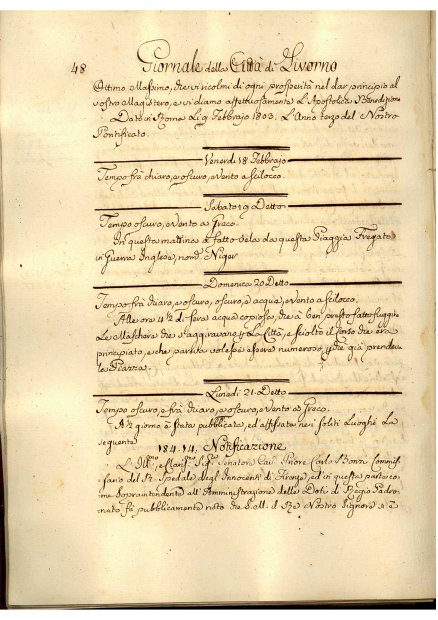 48 Giornale della Città di Livorno
Ottimo Massimo, che vi ricolmi di ogni prosperità nel dar principio al
vostro Magistero, e vi diamo affettuosamente l'Apostolica Benedizione
Dato in Roma li 9 Febbrajo 1803. L'Anno terzo del Nostro
Pontificato.
Venerdi 18 Febbrajo
Tempo frà chiaro, e oscuro, e vento a scilocco.
Sabato 19 Detto
Tempo oscuro, e vento a Greco.
In questa mattina a fatto vela da questa Piaggia Fregata
in Guerra Inglese, nom.ta Niger
Domenica 20 Detto
Tempo frà chiaro, e oscuro, oscuro, e acqua, e vento a scilocco.
Alle ore 4½ di sera acqua copiosa, che à ben presto fatto fuggire
Le Maschere che s'aggiravano per La Città, e sciolto il Corso che era
principiato, e che parlita essere numeroso, che già prendeva
la Piazza.
Lunedi 21 Detto
Tempo oscuro, e frà chiaro, e oscuro, e vento a Greco.
A½ giorno è stata pubblicata, ed affissata nei soliti Luoghi La
seguente
184.14. Notificazione
L'Ill.mo, e Clariss.mo Sig.r Senatore Cav. Priore Carlo Bonsi Commis-
sario del R. Spedale degl'Innocenti di Firenze, ed in questa parte co-
me Soprintendente all'Amministrazione delle Doti di Regio Padro-
nato fà pubblicamente noto che S. M. il Re Nostro Signore s'è